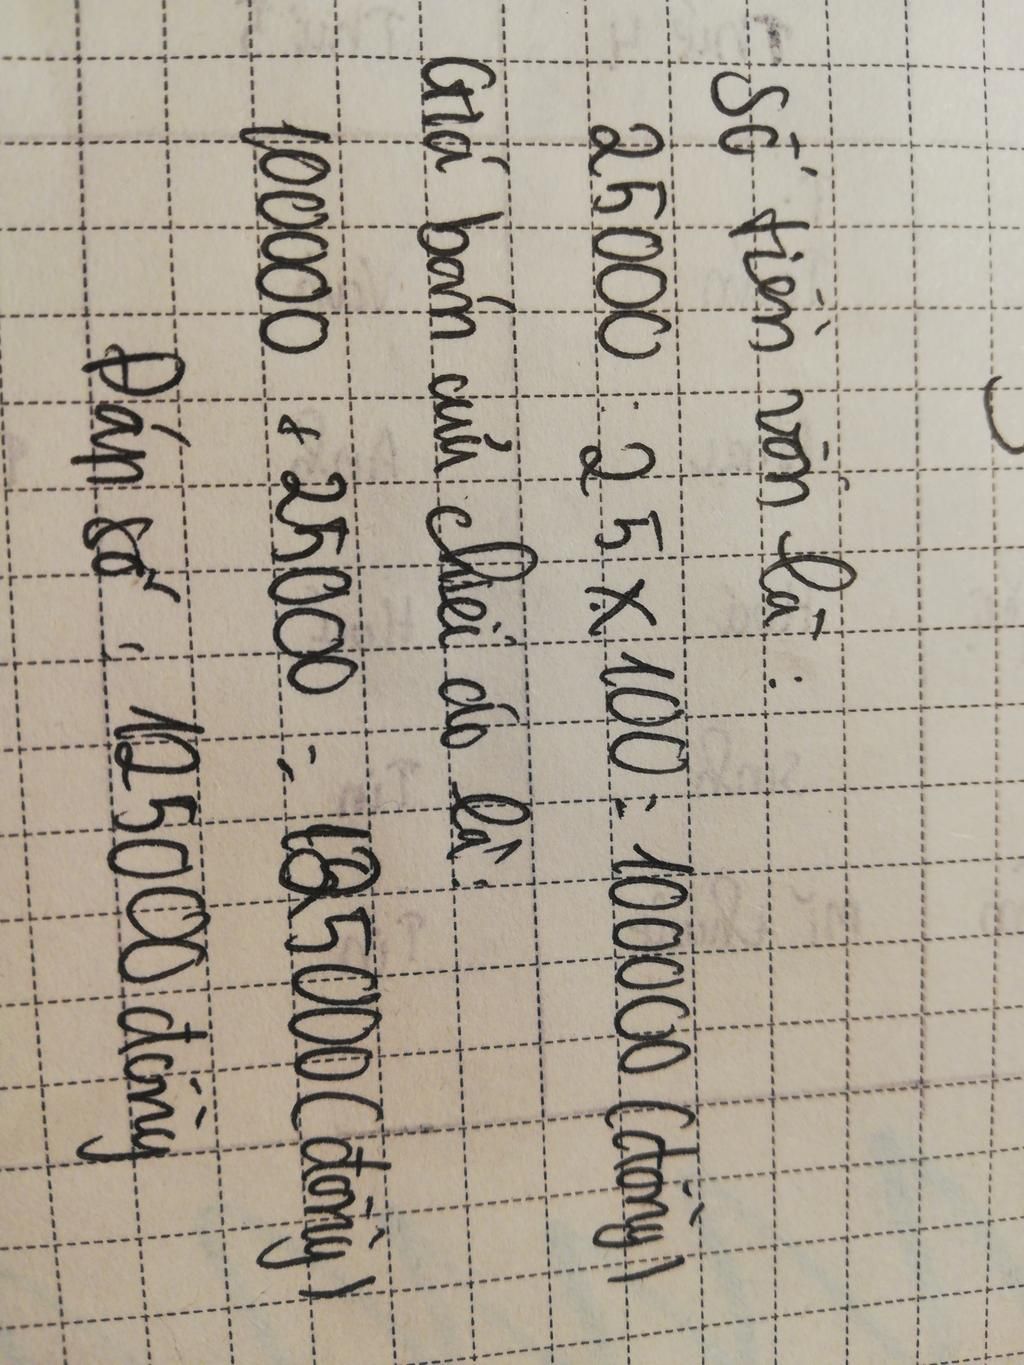 Số tiền vốn là :
25000 : 25 x 100 = 100000 (đồng)
Giá bán của chiếc đó là :
100000 + 25000 = 125000 (đồng)
Đáp số : 125000 đồng